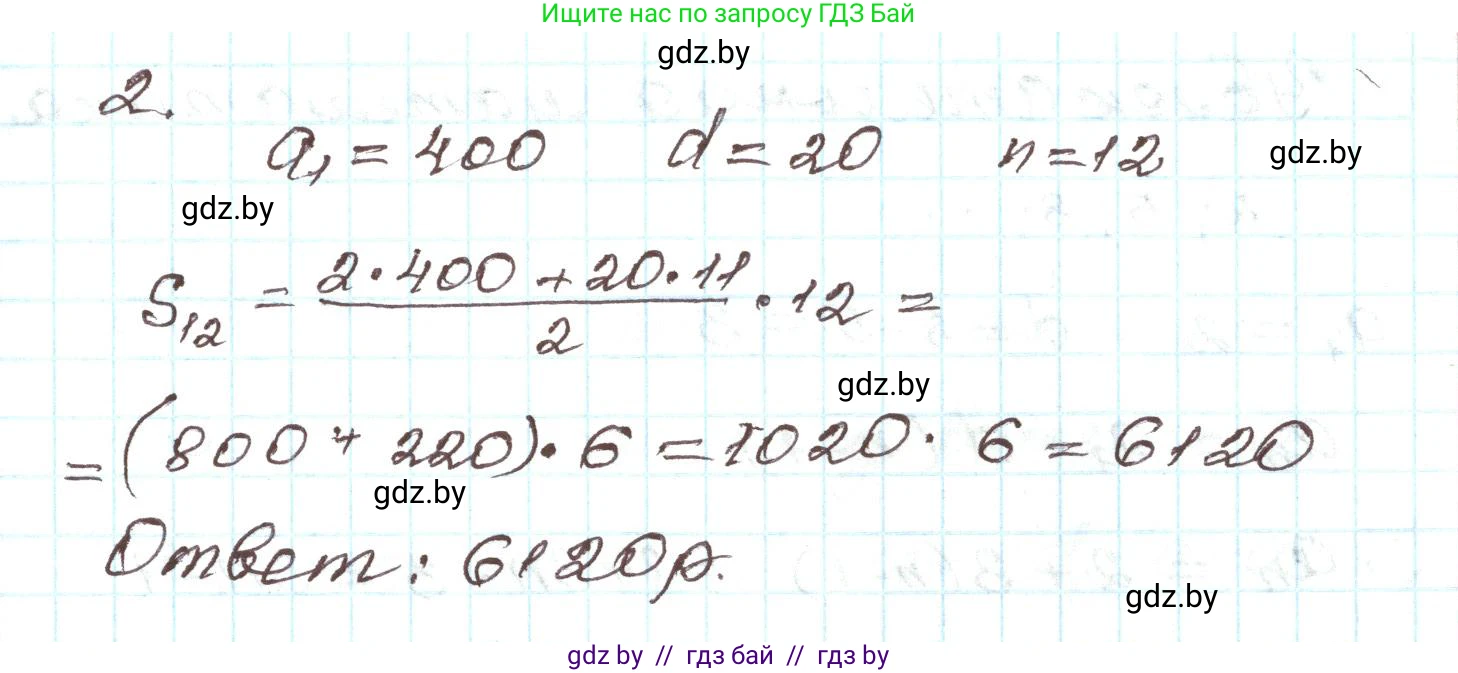 Ищите нас по запросу ГДЗ Бай
gdz.by
2.
a₁ = 400 d = 20 n = 12
gdz.by
gdz.by
S₁₂ = (2·400 + 20·11)/2 · 12 =
gdz.by
= (800 + 220)·6 = 1020·6 = 6120
gdz.by
Ответ: 6120р.
gdz.by
gdz by // гдз бай // гдз by